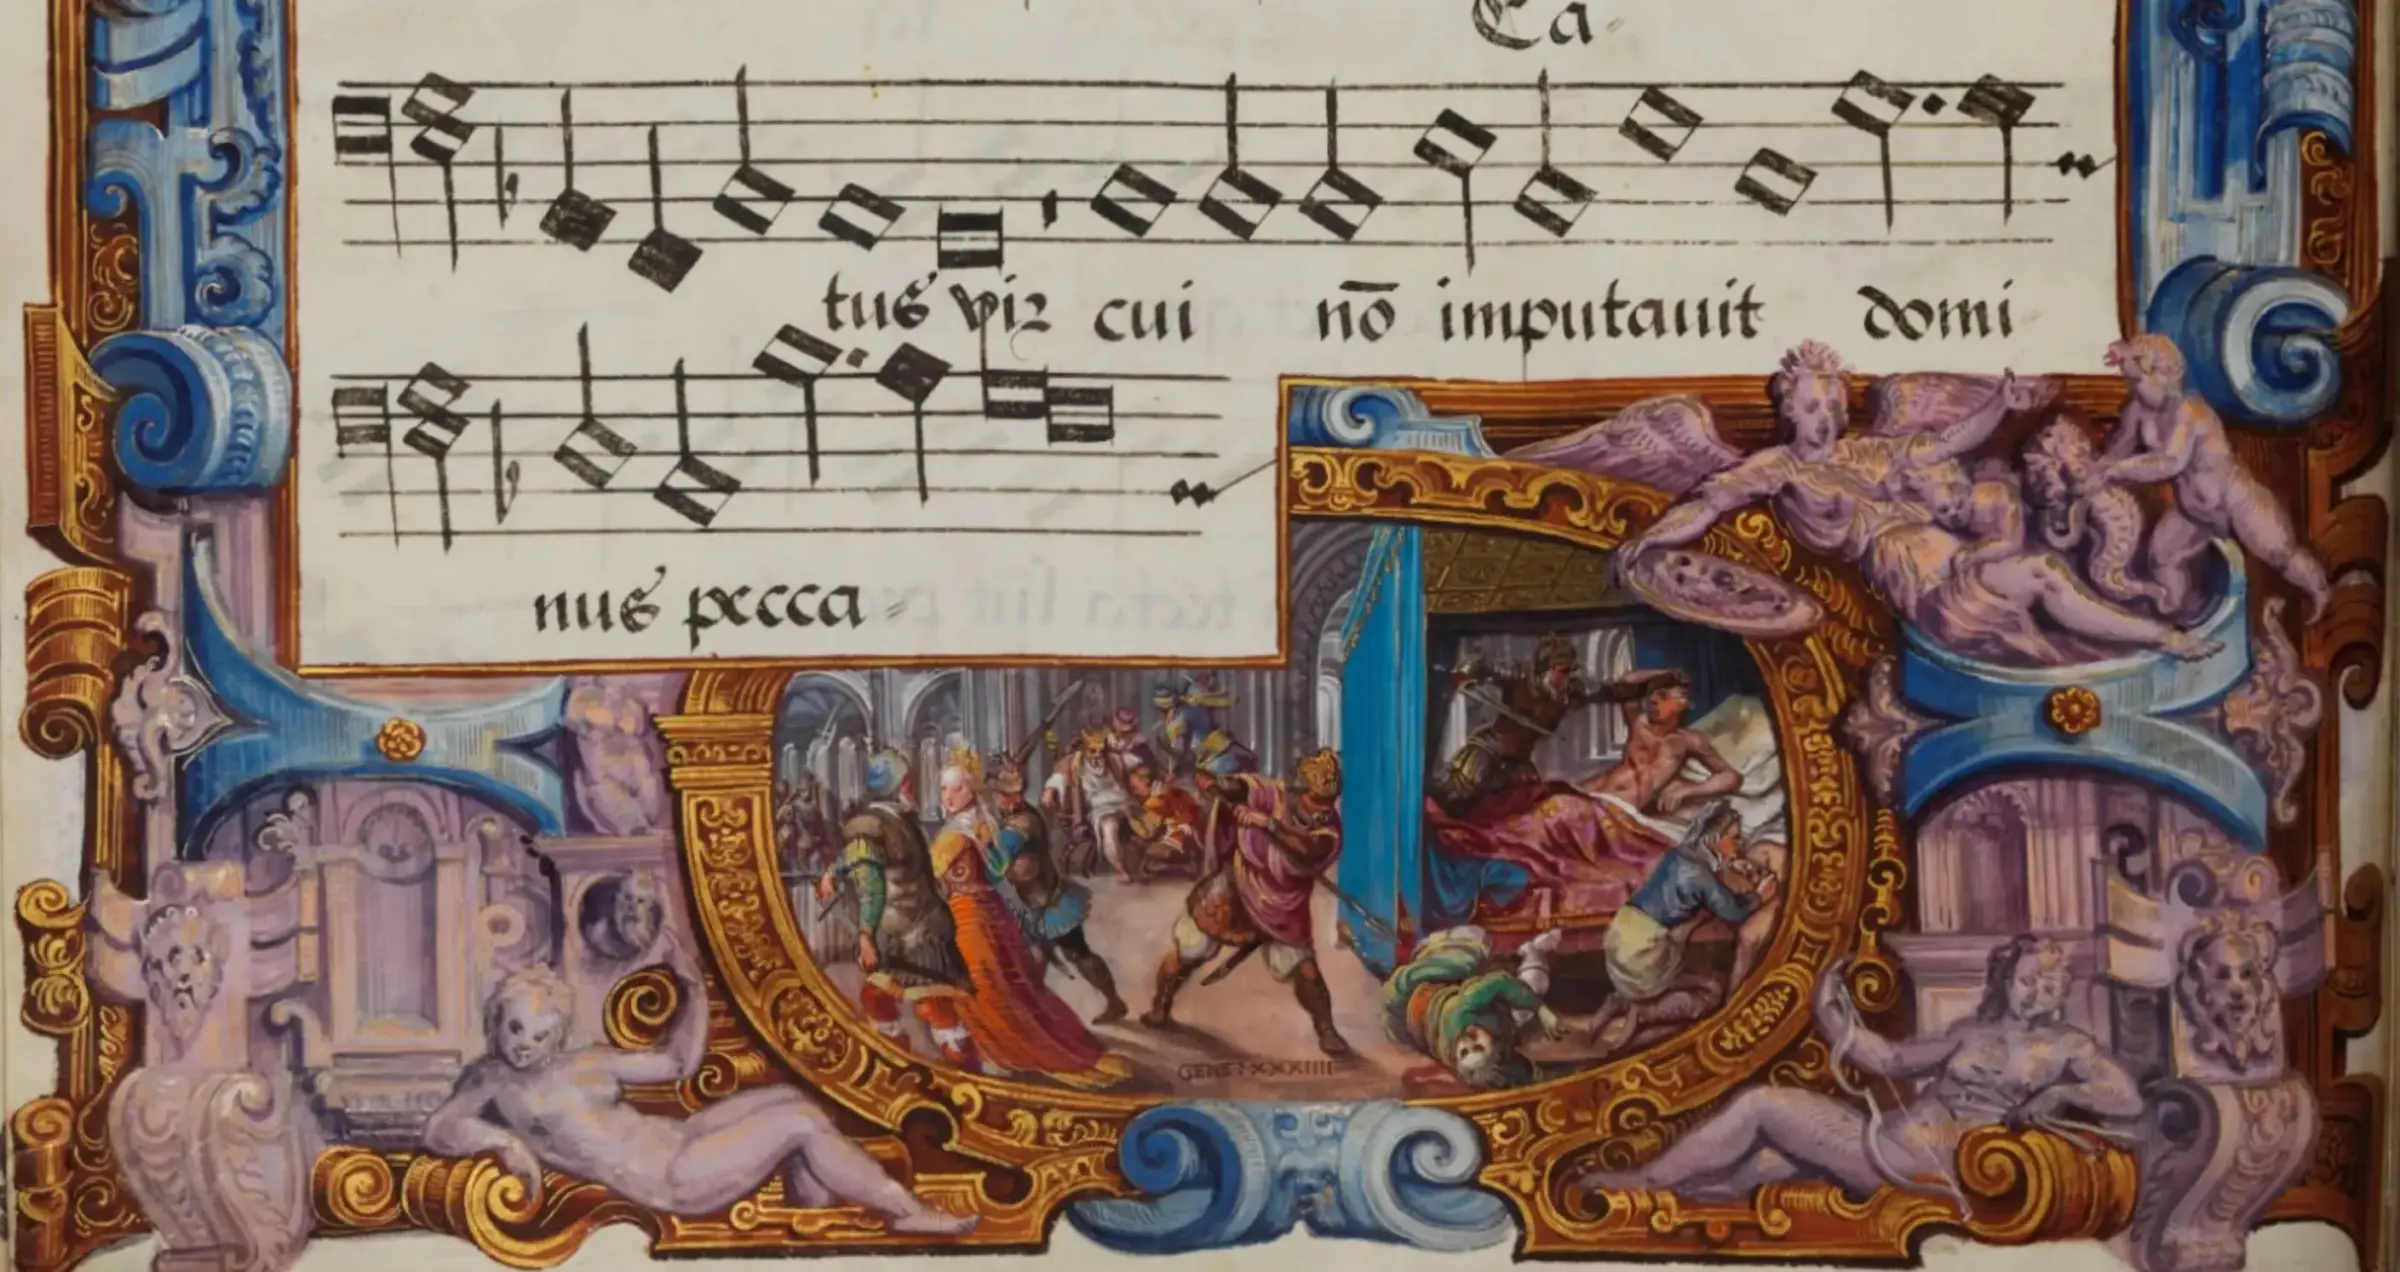 Ca-
tus vir cui nō imputauit domi-
nus pecca-
GENE: XXXIIII